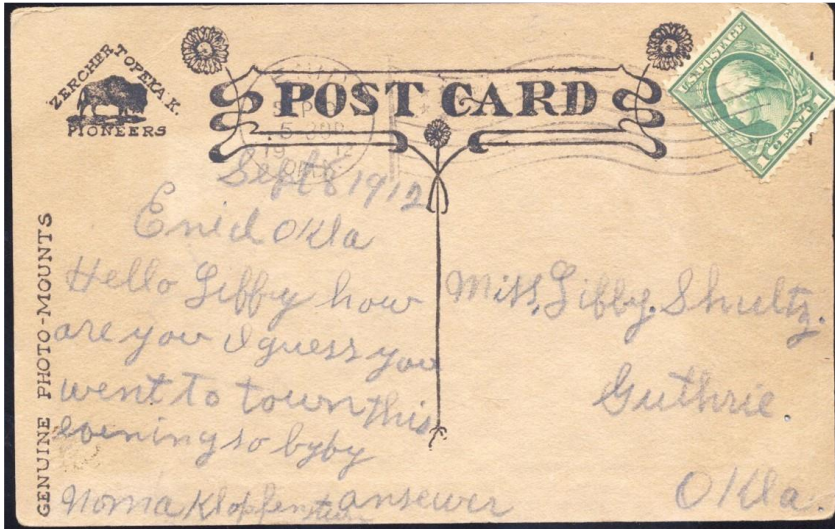 ZERCHER TOPEKA K.
PIONEERS
POST CARD
U.S. POSTAGE
1 CENT 1
GENUINE PHOTO-MOUNTS
Sept 8 1912
Enid Okla
Hello Libby how
are you I guess you
went to town this
evening so byby
Norma Klopfenstein ansewer
Miss, Libby. Shultz.
Guthrie.
Okla.